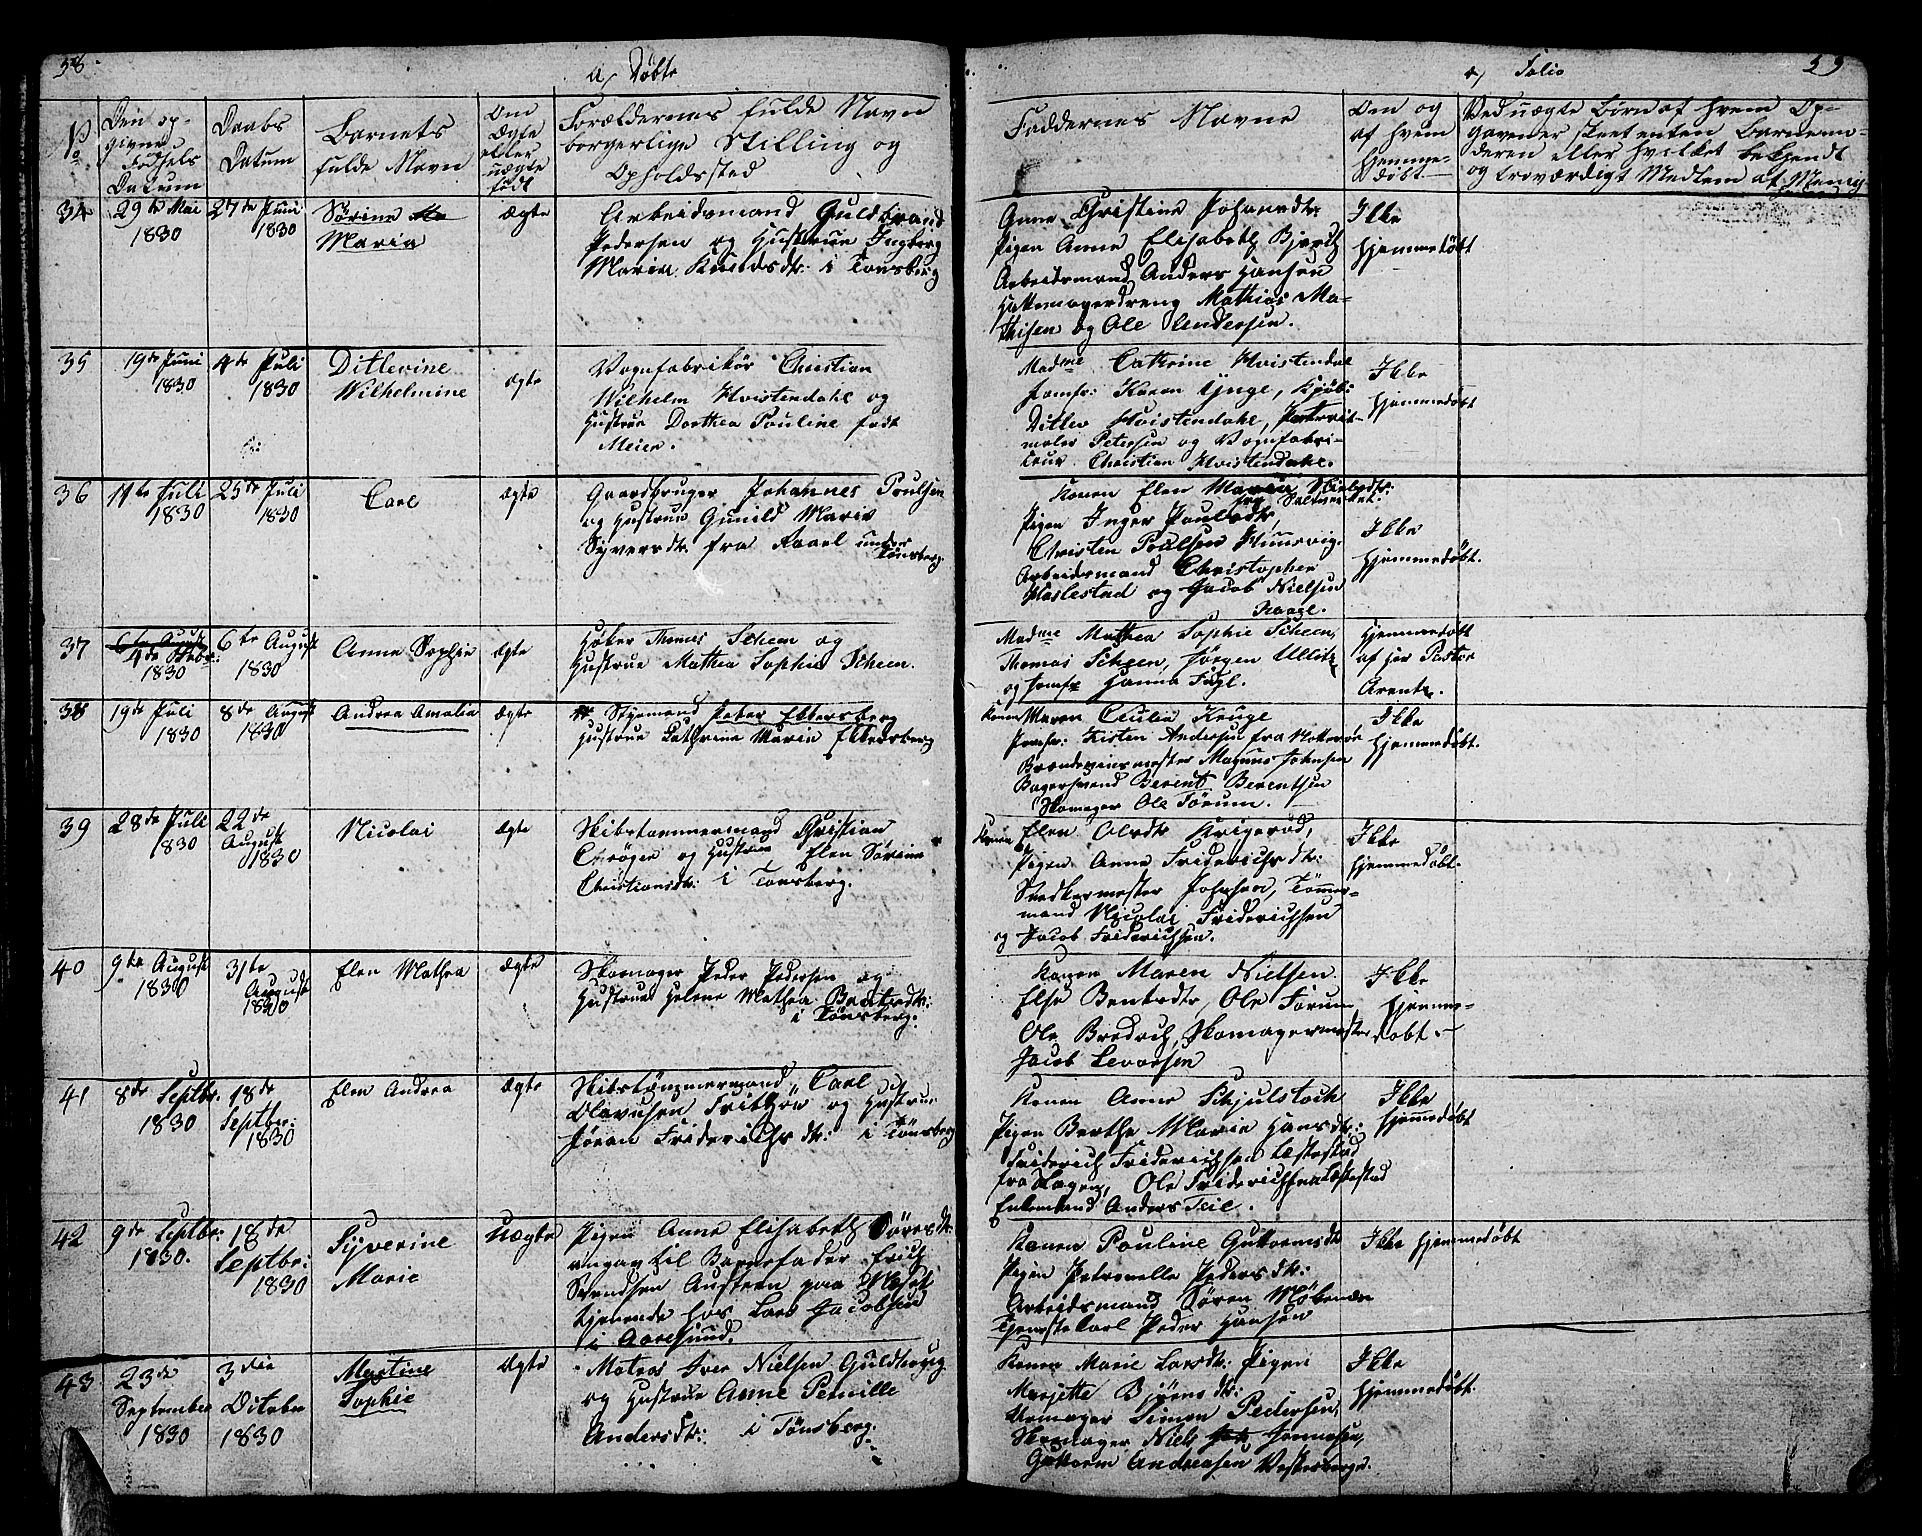 58.
a, Døbte
No
Den op-
givne
Fødsels
Datum
Daabs
Datum
Barnets
fulde Navn
Om
Ægte
eller
uægte
født
Forældrernes fulde Navn
borgerlige Stilling og
Opholdssted
34
29de Mai
1830
27de Juni
1830
Sørine
Maria
Ægte
Arbeidsmand Guldbrand
Pedersen og Hustrue Ingborg
Maria Knudsdtr: i Tønsberg
35
19de Juni
1830
4de Juli
1830
Ditlevine
Wilhelmine
Ægte
Vognfabrikør Christian
Wilhelm Hvistendahl og
Hustrue Dorthea Pouline født
Meier.
36
11te Juli
1830
25de Juli
1830
Carl
Ægte
Gaardbruger Johannes Poulsen
og Hustrue Gunild Marie
Syversdtr: fra Raael under
Tønsberg
37
6te August
4de
1830
6te August
1830
Anne Sophie
Ægte
Høker Thomas Scheen og
Hustrue Mathea Sophie Scheen.
38
19de Juli
1830
8de August
1830
Andrea Amalia
Ægte
Styrmand Peter Ekersberg
Hustrue Cathrine Marie Ekersberg
39
28de Juli
1830
22de
August
1830
Nicolai
Ægte
Skibstømmermand Christian
og Hustrue Elen Sørine
Christiansdtr: i Tønsberg.
40
9de August
1830
31te
August
1830
Elen Mathea
Ægte
Skomager Peder Pedersen og
Hustrue Helene Mathea Berntsdtr:
i Tønsberg.
41
8de Septbr:
1830
18de
Septbr:
1830
Elen Andrea
Ægte
Skibstømmermand Carl
Olavusen og Hustrue
Jøran Friderichsdtr: i Tønsberg
42
9de Septbr:
1830.
18de
Septbr:
1830
Syverine
Marie
Uægte
Pigen Anne Elisabeth Sørensdtr:
angav til Barnefader Erich
Svendsen Austeen paa
tjenende hos Lars Jacobsen
i Aaresund.
43
23de
September
1830
3die
October
1830
Martine
Sophie
Ægte
Matros Iver Nielsen
og Hustrue Anne Pernille
Andersdtr: i Tønsberg.
a, Folio
59
Faddernes Navne
Om og
af hvem
hjemme-
døbt
Ved uægte Børn af hvem Op-
gavener skeet enten Barnemo-
deren eller hvilket bekjendt
og troværdigt Medlem af Menig
Anne Christine Johansdtr:
Pigen Anne Elisabeth
Arbeidsmand Anders Hansen
Hattemagerdreng Mathias Ma-
thisen og Ole Andersen.
Ikke
hjemmedøbt
Madme Cathrine Hvistendal
Jomfr: Karen Lÿnge,
Ditlev Hvistendahl, Portrait-
maler Petersen og Vognfabri-
Christian Hvistendahl.
Ikke
hjemmedøbt
Konen Elen Maria
fra Saltværket.
Pigen Inger Poulsdtr
Christen Poulsen
Arbeidsmand Christopher
Haslestad og Jacob Nielsen
Ikke
hjemmedøbt.
Madme Mathea Sophie Scheen,
Thomas Scheen, Jørgen
og Jomfr Hanna Fÿgl.
Hjemmedøbt
af Hr Pastor
Arentz.
Konen Maren Cecilia Kruge
Jomfr: Kisten Andersen fra Nøtterøe
Brændeviinsmester Magnus Johnsen
Bagersvend Berent Berentsen
Skomager Ole Førum.
Ikke
hjemmedøbt.
Konen Elen Olsdtr Krigerød,
Pigen Anne Friderichsdtr:
Snedkermester Johnsen, Tømmer-
mand Nicolai Friderichsen
og Jacob Friderichsen.
Ikke
hjemmedøbt.
Konen Maren Nielsen
Else Berntsdtr, Ole Førum
Ole Brodrich, Skomagermester
Jacob Levorsen
Ikke
hjemme-
døbt.
Konen Anne Schjulstoch
Pigen Berthe Marie Hansdtr:
Friderich Friderichsen
fra Skogen, Ole Friderichsen
Enkemand Anders Teie.
Ikke
hjemmedøbt
Konen Pouline Guttormsdtr
Pigen Petronelle Pedersdtr:
Arbeidsmand Søren
Tjenestekarl Peder Hansen
Ikke hjemmedøbt
Konen Marie Larsdtr: Pigen
Marjette Bjørnsdtr:
Urmager Simon Pedersen,
Skomager Niels
Guttorm Andreasen
Ikke
hjemmedøbt.